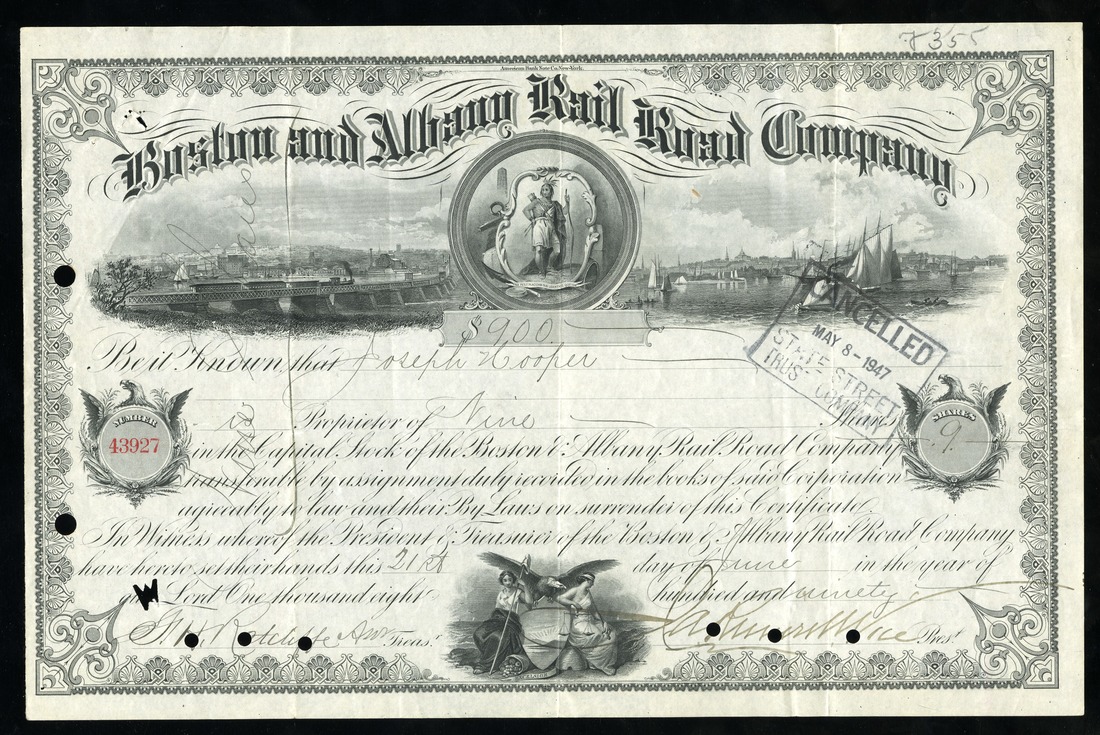 7355
American Bank Note Co. New-York.
Boston and Albany Rail Road Company
$900
Be it Known that Joseph Cooper
CANCELLED
MAY 8-1947
STATE STREET
TRUST COMPANY
is Proprietor of Nine Shares
NUMBER
43927
SHARES
9
in the Capital Stock of the Boston & Albany Rail Road Company
transferable by assignment duly recorded in the books of said Corporation
agreeably to law and their By Laws on surrender of this Certificate
In Witness whereof the President & Treasurer of the Boston & Albany Rail Road Company
have hereto set their hands this 21st day of June in the year of
our Lord One thousand eight hundred and ninety
Treasr.
Prest.